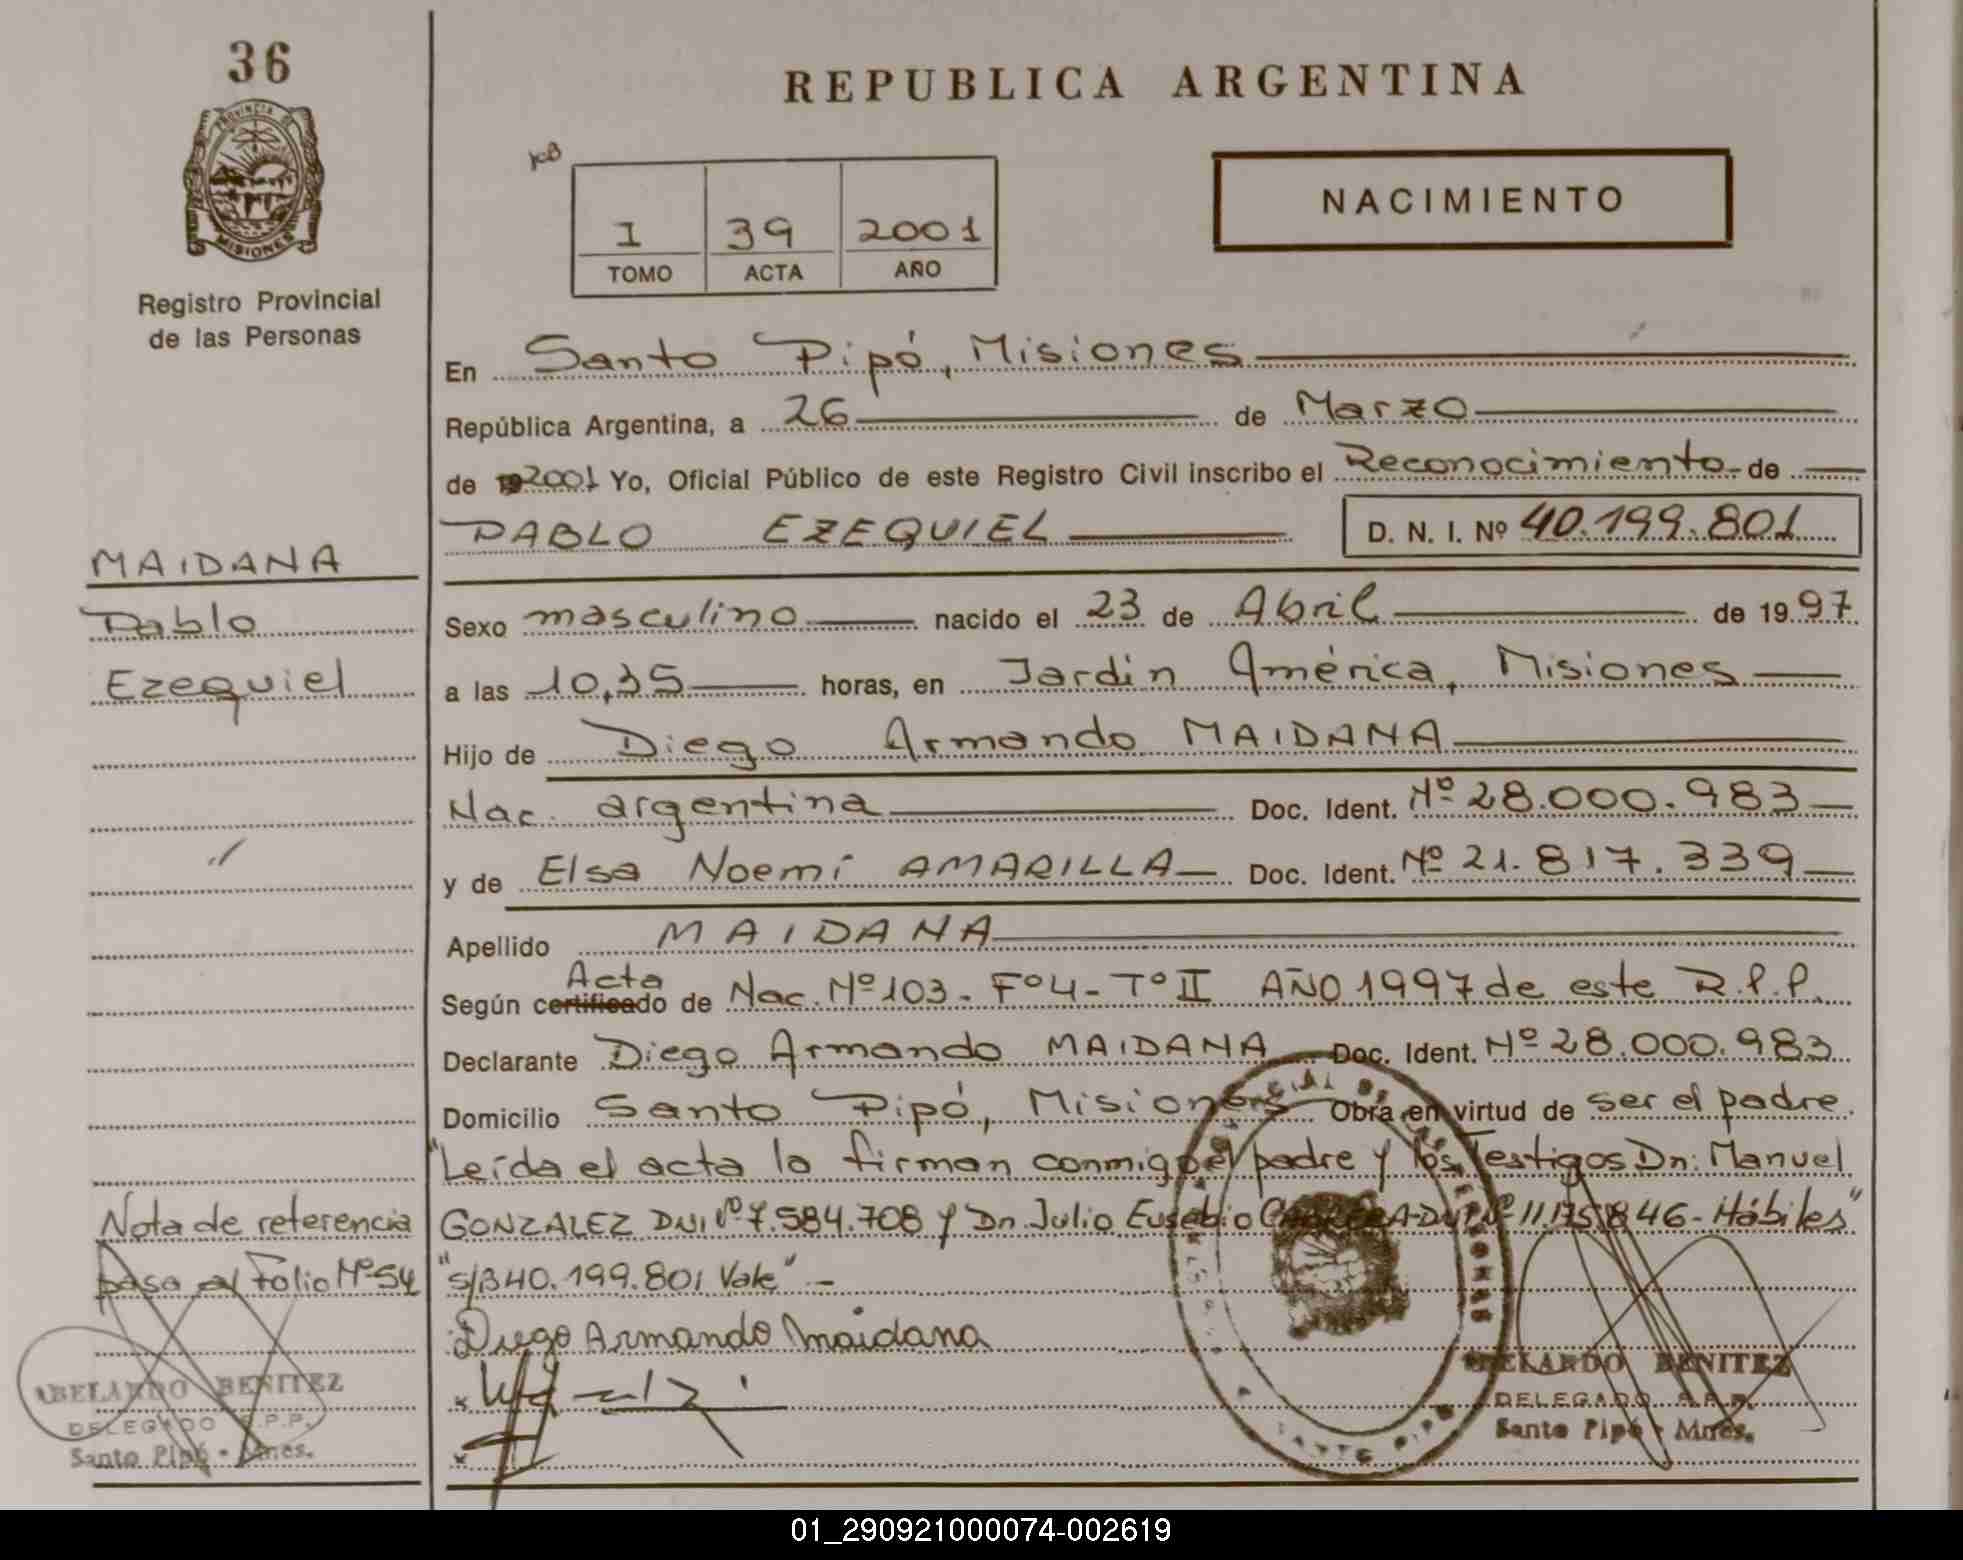 36
PROVINCIA DE
MISIONES
Registro Provincial
de las Personas
REPUBLICA ARGENTINA
I 39 2001
TOMO ACTA AÑO
NACIMIENTO
En Santo Pipó, Misiones
República Argentina, a 26 de Marzo
de 2001 Yo, Oficial Público de este Registro Civil inscribo el Reconocimiento de
PABLO EZEQUIEL D. N. I. Nº 40.199.801
MAIDANA
Pablo
Ezequiel
Sexo masculino nacido el 23 de Abril de 1997
a las 10,35 horas, en Jardín América, Misiones
Hijo de Diego Armando MAIDANA
Nac. argentina Doc. Ident. Nº 28.000.983
y de Elsa Noemí AMARILLA Doc. Ident. Nº 21.817.339
Apellido MAIDANA
Acta
Según certificado de Nac. Nº 103 - Fº 4 - Tº II AÑO 1997 de este R.P.P.
Declarante Diego Armando MAIDANA Doc. Ident. Nº 28.000.983
Domicilio Santo Pipó, Misiones Obra en virtud de ser el padre.
"Leída el acta la firman conmigo el padre y los Testigos Dn: Manuel
GONZALEZ DNI Nº 7.584.708 y Dn. Julio Eusebio Nº 11.175.846 - Hábiles"
"S/B 40.199.801 Vale" . -
Diego Armando Maidana
Nota de referencia
pasa al Folio Nº 54
ABELARDO BENITEZ
DELEGADO R.P.P.
Santo Pipó - Mnes.
ABELARDO BENITEZ
DELEGADO R.P.P.
Santo Pipó - Mnes.
01_290921000074-002619